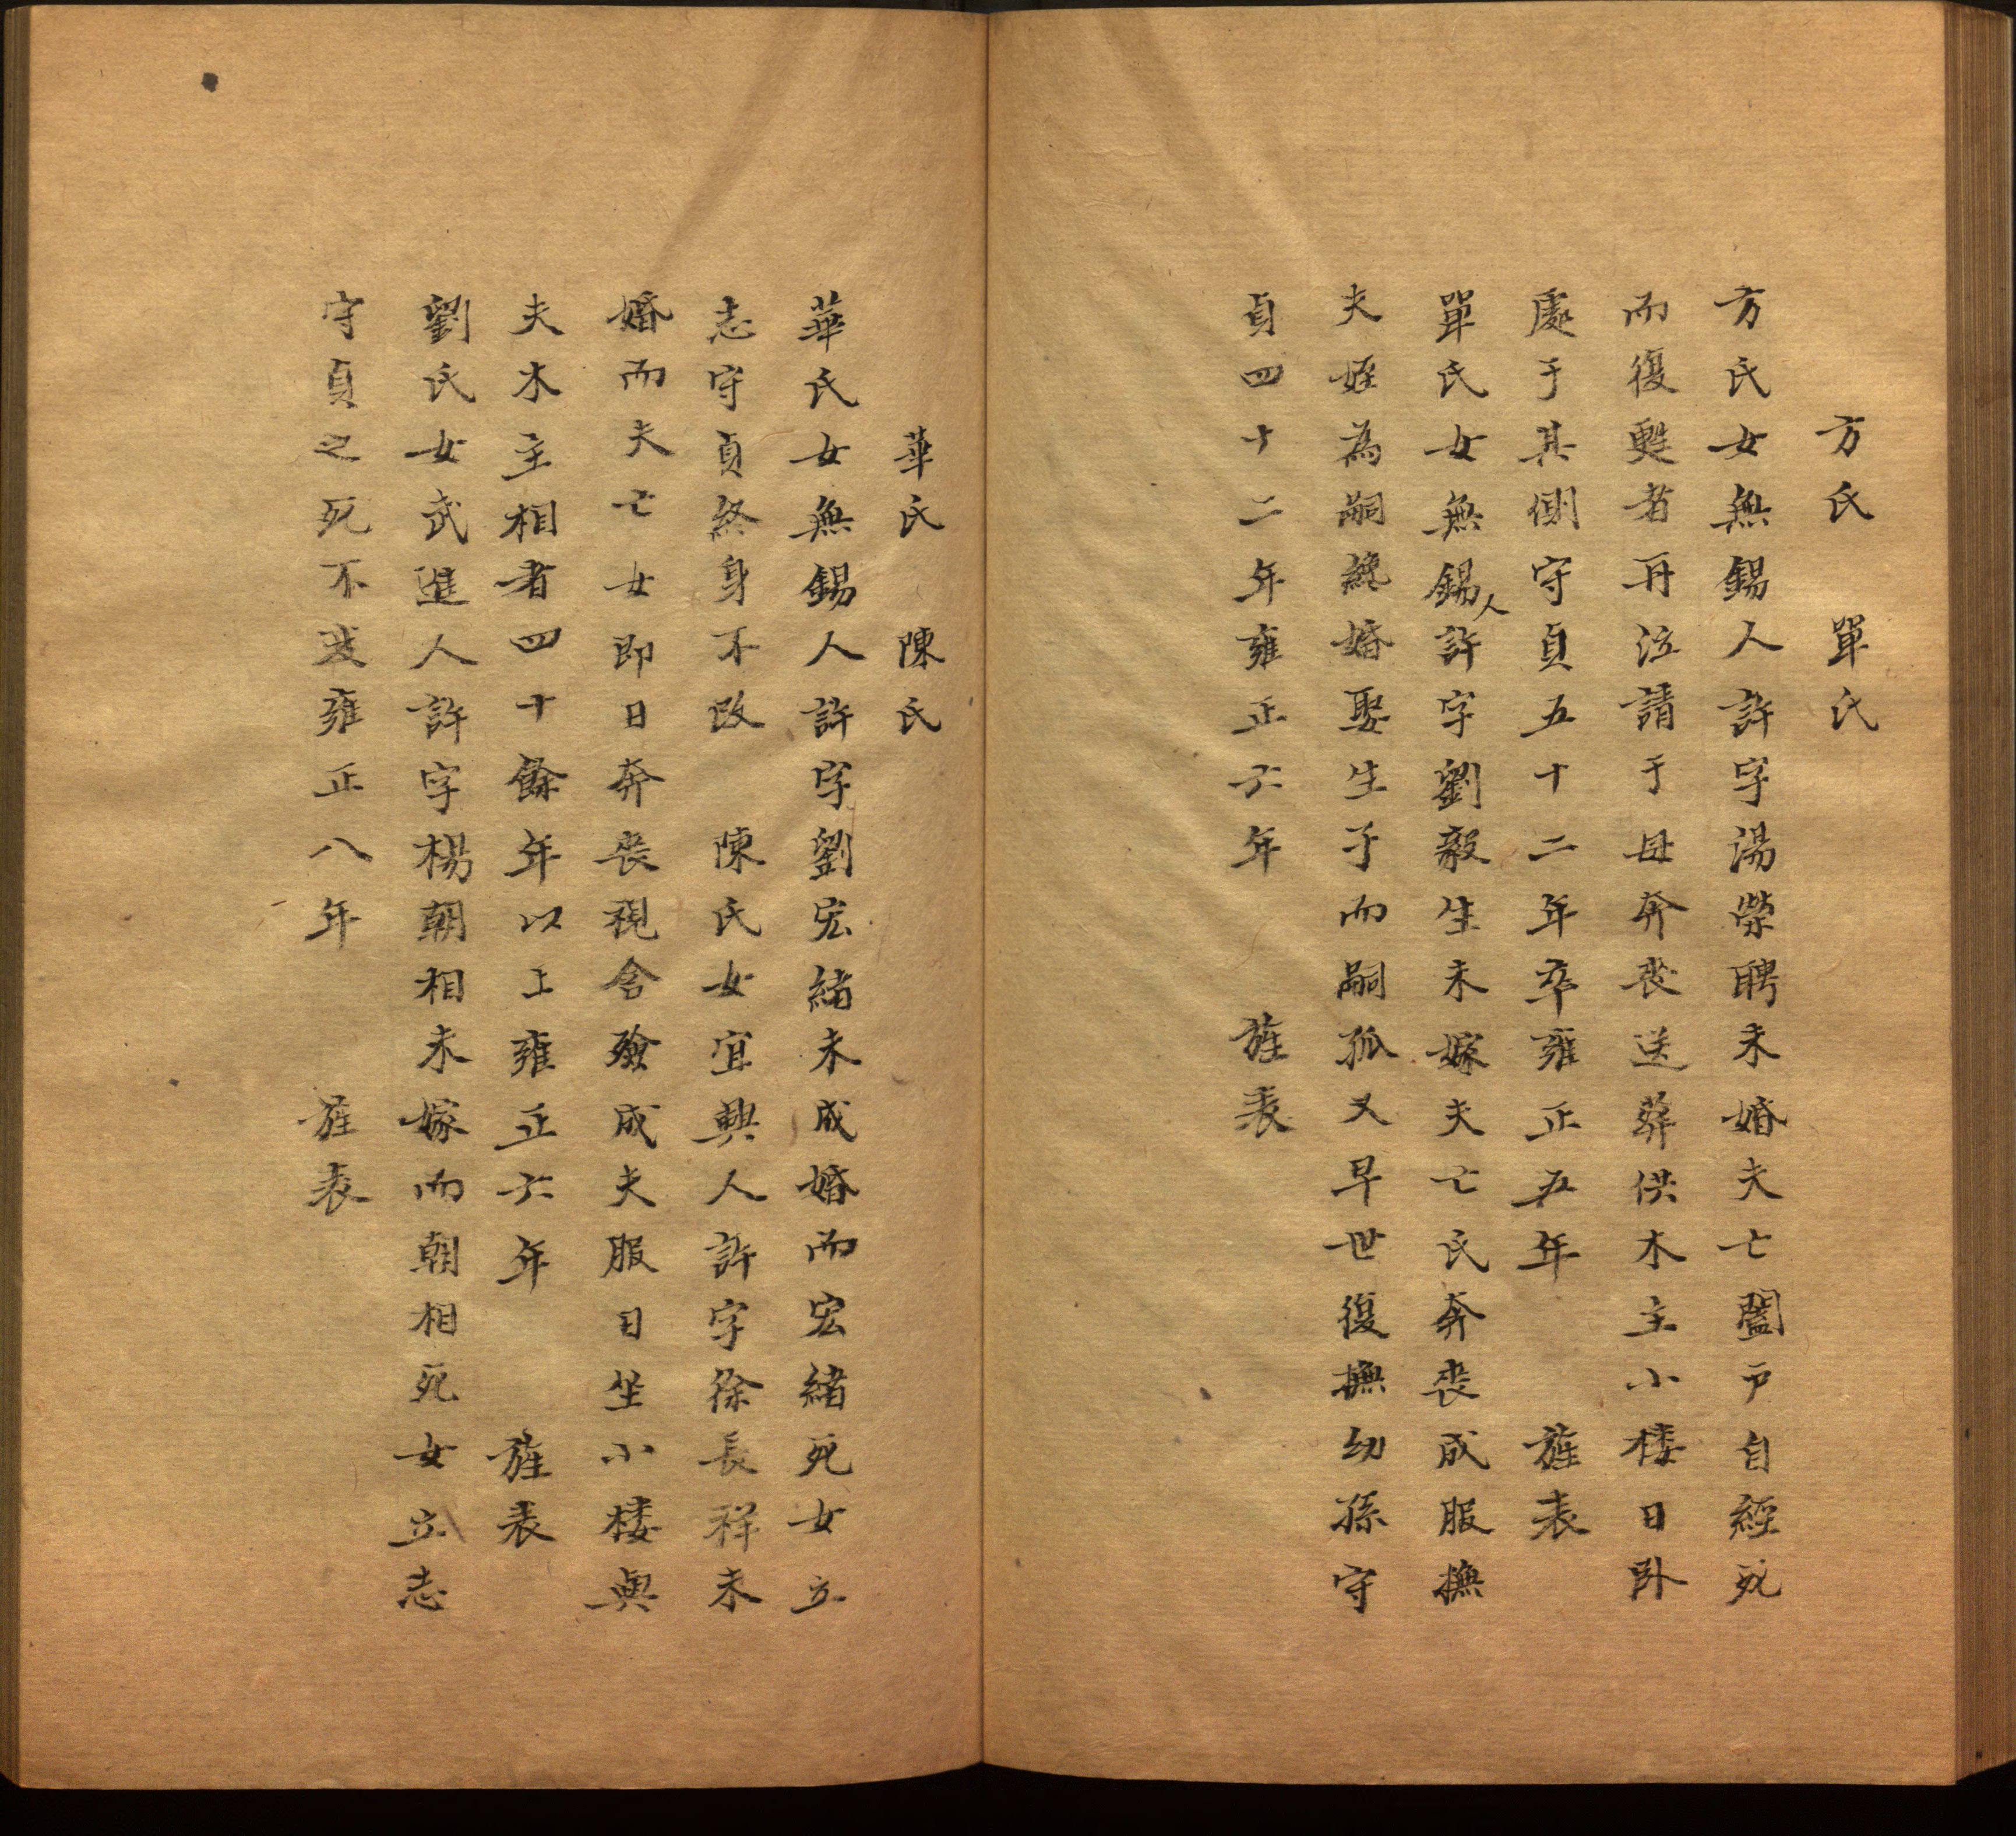 方氏　單氏
方氏女無錫人許字湯榮聘未婚夫亡闔戶自經死
而復甦者再泣請于母奔喪送葬供木主小楼日卧
處于其側守貞五十二年卒雍正五年　旌表
單氏女無錫人許字劉毅生未嫁夫亡氏奔喪成服撫
夫姪為嗣終婚娶生子而嗣孤又早世復撫幼孫守
貞四十二年雍正六年　旌表
華氏　陳氏
華氏女無錫人許字劉宏緒未成婚而宏緒死女立
志守貞終身不改　陳氏女宜興人許字徐長祥未
婚而夫亡女即日奔喪視含殮成夫服日坐小楼與
夫木主相者四十餘年以上雍正六年　旌表
劉氏女武進人許字楊朝相未嫁而朝相死女立志
守貞之死不歿雍正八年　旌表